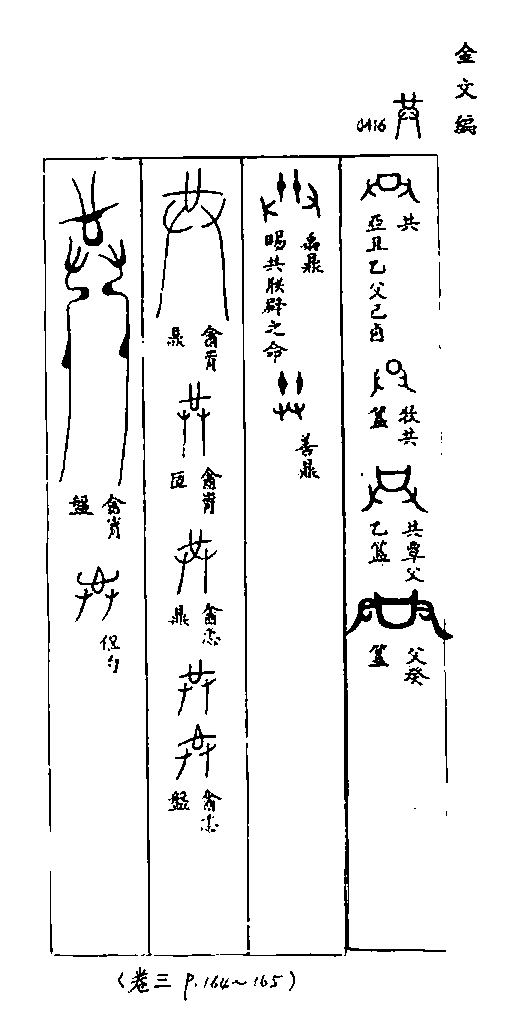 金文編
0416 共
共
亞且乙父己卣
牧共
簋
共覃父
乙簋
父癸
簋
禹鼎
賜共朕辟之命
善鼎
酓肯
鼎
酓肯
匜
酓忎
鼎
酓忎
盤
酓肯
盤
但勺
(卷三 P.164~165)